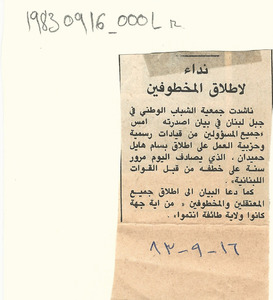 19830916_000L
نداء
لاطلاق المخطوفين
ناشدت جمعية الشباب الوطني في
جبل لبنان في بيان اصدرته امس
«جميع المسؤولين من قيادات رسمية
وحزبية العمل على اطلاق بسام هايل
حميدان، الذي يصادف اليوم مرور
سنة على خطفه من قبل القوات
اللبنانية».
كما دعا البيان الى اطلاق جميع
المعتقلين والمخطوفين «من اية جهة
كانوا ولاية طائفة انتموا».
١٦-٩-٨٣